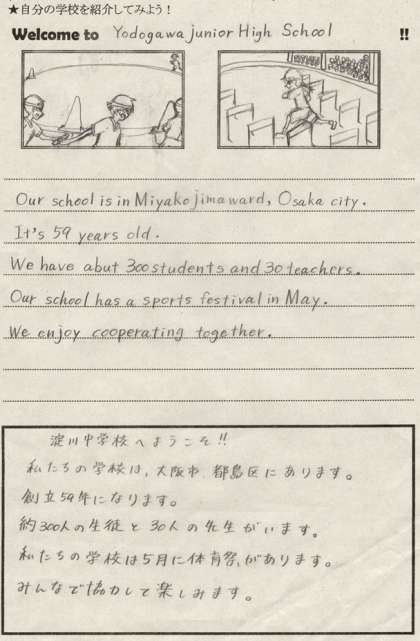 ★自分の学校を紹介してみよう！
Welcome to Yodogawa junior High School !!
Our school is in Miyakojima ward, Osaka city.
It's 59 years old.
We have abut 300 students and 30 teachers.
Our school has a sports festival in May.
We enjoy cooperating together.
淀川中学校へようこそ!!
私たちの学校は、大阪市 都島区にあります。
創立59年になります。
約300人の生徒と30人の先生がいます。
私たちの学校は5月に体育祭があります。
みんなで協力して楽しみます。